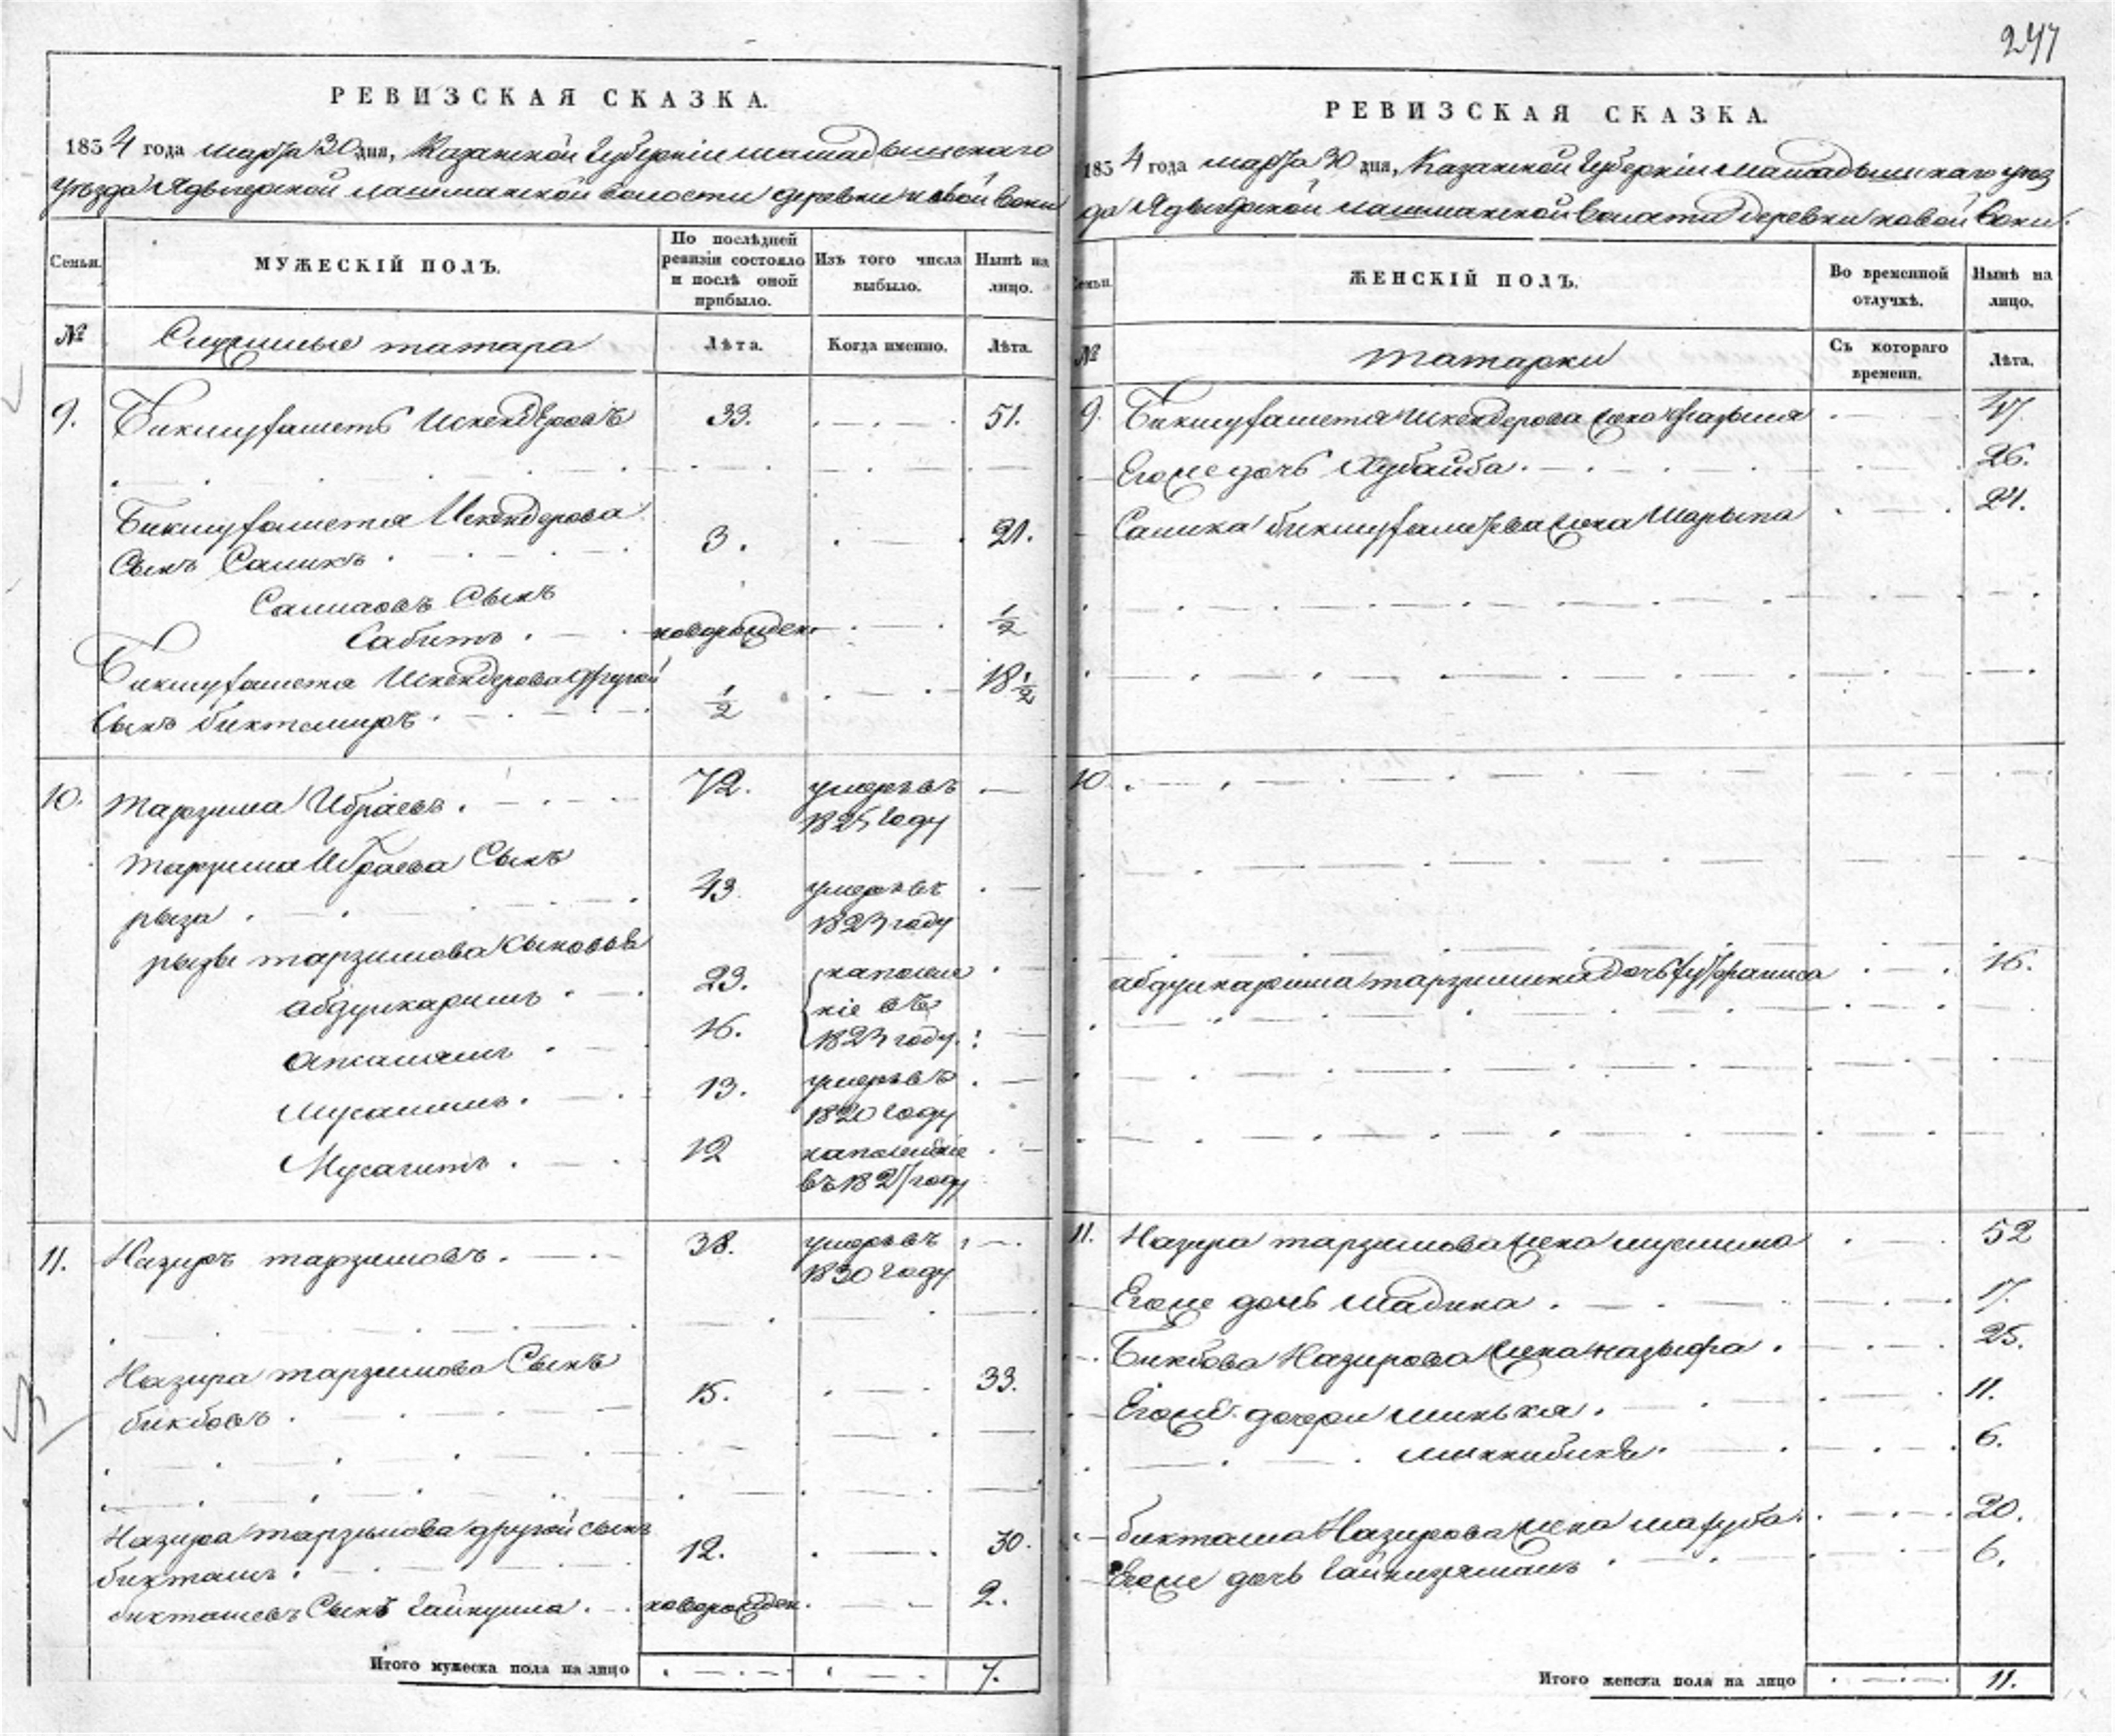 247
РЕВИЗСКАЯ СКАЗКА.
1834 года марта 30 дня, Казанской Губернiи мамадышскаго
уезда Ядыгерской лашманской волости деревни новой
Семьи.
МУЖЕСКIЙ ПОЛЪ.
По послѣдней ревизiи состояло и послѣ оной прибыло.
Изъ того числа выбыло.
Нынѣ на лицо.
№
Служилые татара
Лѣта.
Когда именно.
Лѣта.
9. Бикмухаметъ Искендеровъ 33. 51.
Бикмухаметя Искендерова
Сынъ Саликъ 3. 21.
Салиховъ Сынъ
Сабитъ новорожден 1/2
Бикмухаметя Искендерова другой 18 1/2
Сынъ биктемиръ 1/2
10. Тарзима Ибраевъ 72. умеръ въ
1825 году
Тарзима Ибраева Сынъ
рыза 43 умеръ въ
1823 году
рызы тарзимова сыновья
абдулкаримъ 29.
16. 1823 году
13. умеръ въ
1820 году
Мусагитъ 12
въ 182 году
11. Назиръ тарзимовъ 38. умеръ въ
1830 году
Назира тарзимова Сынъ
бикбовъ 15. 33.
Назира тарзимова другой сынъ
бикташъ 12. 30.
бикташевъ Сынъ Гайнулла новорожден 2.
Итого мужеска пола на лицо 7.
РЕВИЗСКАЯ СКАЗКА.
1834 года марта 30 дня, Казанской Губернiи мамадышскаго уез
да Ядыгерской лашманской волости деревни новой
Семьи.
ЖЕНСКIЙ ПОЛЪ.
Во временной отлучкѣ.
Нынѣ на лицо.
№
татарки
Съ котораго времени.
Лѣта.
9. Бикмухаметя Искендерова жена 47
Егоже дочь Хубайба 26.
Салика бикмухаметева жена Шарыпа 21.
10.
абдулкарима тарзимина дочь 16.
11. Назира тарзимова жена муслима 52
Егоже дочь Шадика 17.
Бикбова Назирова жена назыфа 25.
Егоже дочери минькя 11.
миннибике 6.
бикташа Назирова жена махуба 20.
Егоже дочь Гайнизямалъ 6.
Итого женска пола на лицо 11.